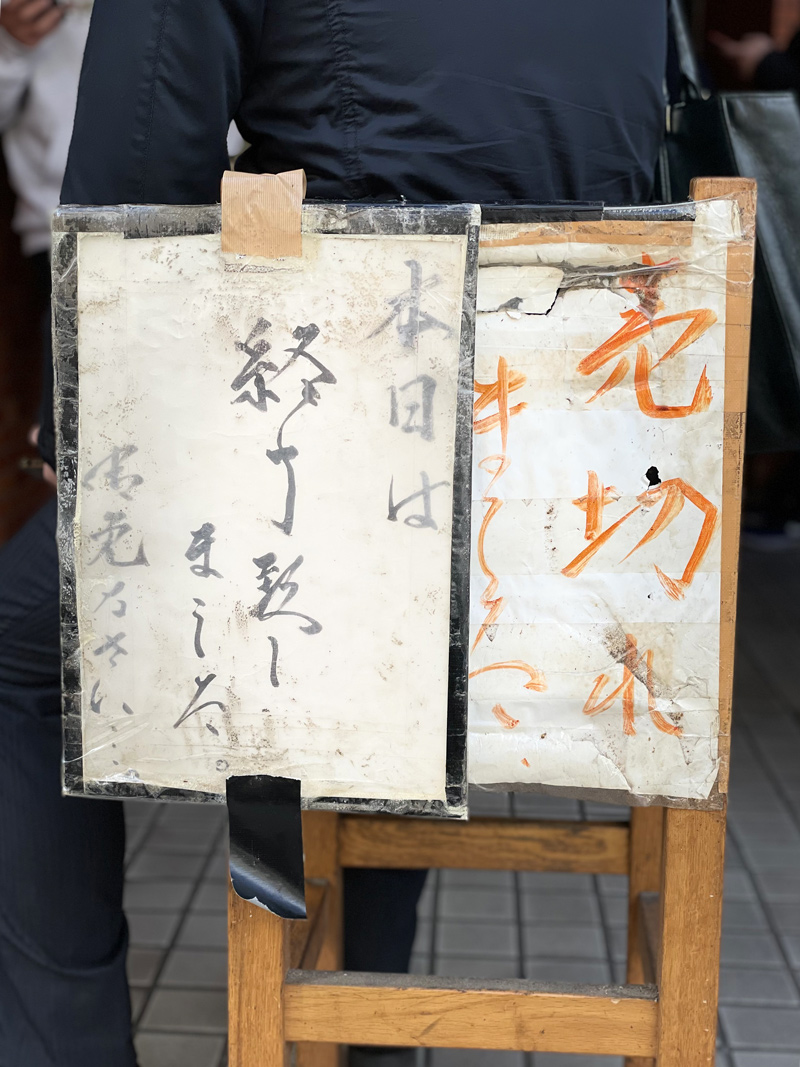 売切れ
ました
本日は
終了致し
ました。
御免なさい…